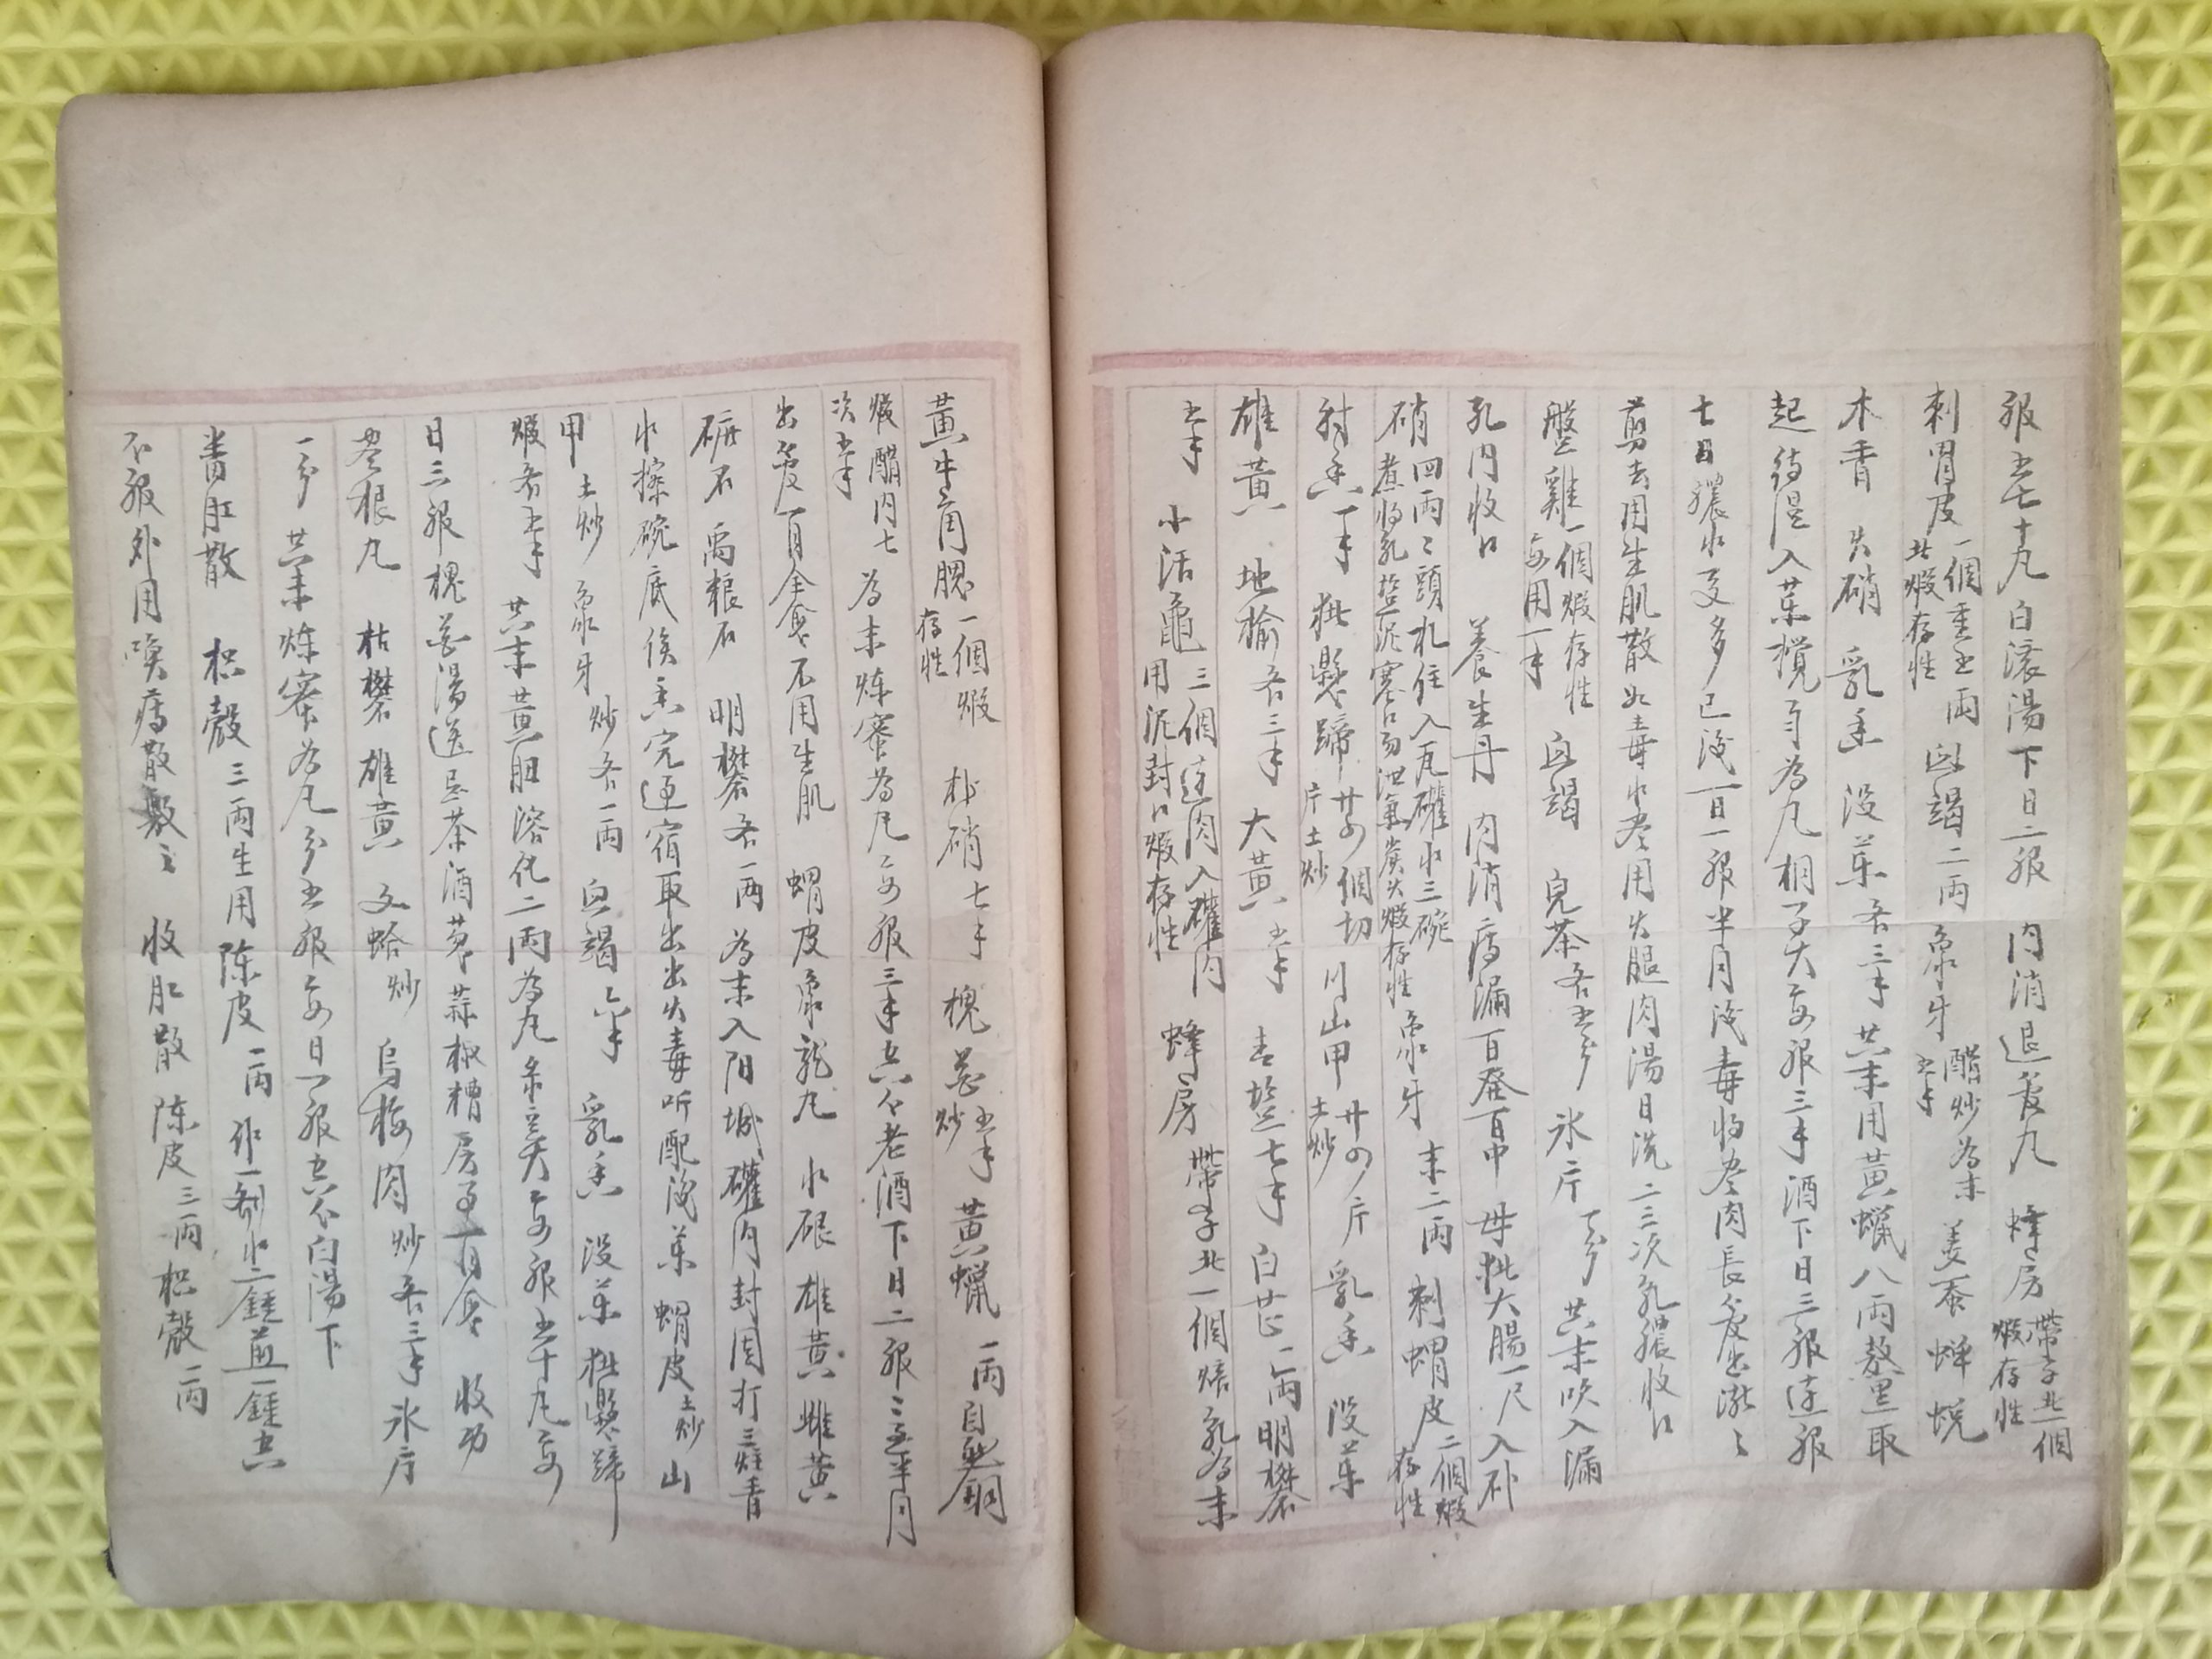 服五七十丸白滚湯下日二服 内消退管丸 蜂房帶子北一個煅存性
刺胃皮一個重五兩北煅存性 血竭二兩 象牙醋炒為末五千 姜蚕 蟬蜕
木香 火硝 乳香 没藥各三千 共末用黃蠟八兩熬黑取
起待温入藥攪勻為丸桐子大每服三千酒下日三服連服
七日膿水更多已後一日一服半月後毒將尽肉長管出漸々
剪去用生肌散如毒水尽用火腿肉湯日洗二三次孔膿收口
盤雞一個煅存性每用一千 血竭 兒茶各五分 氷片一分 共末吹入漏
孔内收口 養生丹 内消痔漏百發百中 母猪大腸一尺入朴
硝四兩二頭扎住入瓦罐水三碗煮將乳塩泥塞口勿泄氣炭火煅存性 象牙末二兩 刺蝟皮二個煅存性
射香一千 猪懸蹄廿四個切片土炒 川山甲廿四片土炒 乳香 没藥
雄黃 地榆各三千 大黃五千 青塩七千 白芷一兩 明礬
五千 小活龜三個連肉入礶内用泥封口煅存性 蜂房帶子北一個焙乳為末
黃牛角腮一個煅存性 朴硝七千 槐花五千炒 黃蠟一兩 自然銅
煅醋内七次五千 為末炼蜜為丸每服三千空心老酒下日二服二三至半月
出管一百全愈不用生肌 蝟皮象龍丸 水銀 雄黃 雌黃
砒石 禹粮石 明礬各一兩 為末入阳城礶内封固打三炷香
水擦碗底候香完逥宿取出出火毒听配後藥 蝟皮土炒 山
甲土炒 象牙炒各一兩 血竭六千 乳香 没藥 猪懸蹄
煅各五千 共末黃胆溶化二兩為丸泵豆大每服五十丸每
日三服槐花湯送忌茶酒葱蒜椒糟房事一百全愈 收功
尽根丸 枯礬 雄黃 文蛤炒 烏梅肉炒各三千 氷片
一分 共末炼蜜為丸分五服每日一服空心白湯下
番肛散 枳殼三兩生用 陈皮一兩 作一剂水二鍾煎一鍾空
心服外用喚痔散敷之 收肛散 陈皮三兩 枳殼一兩